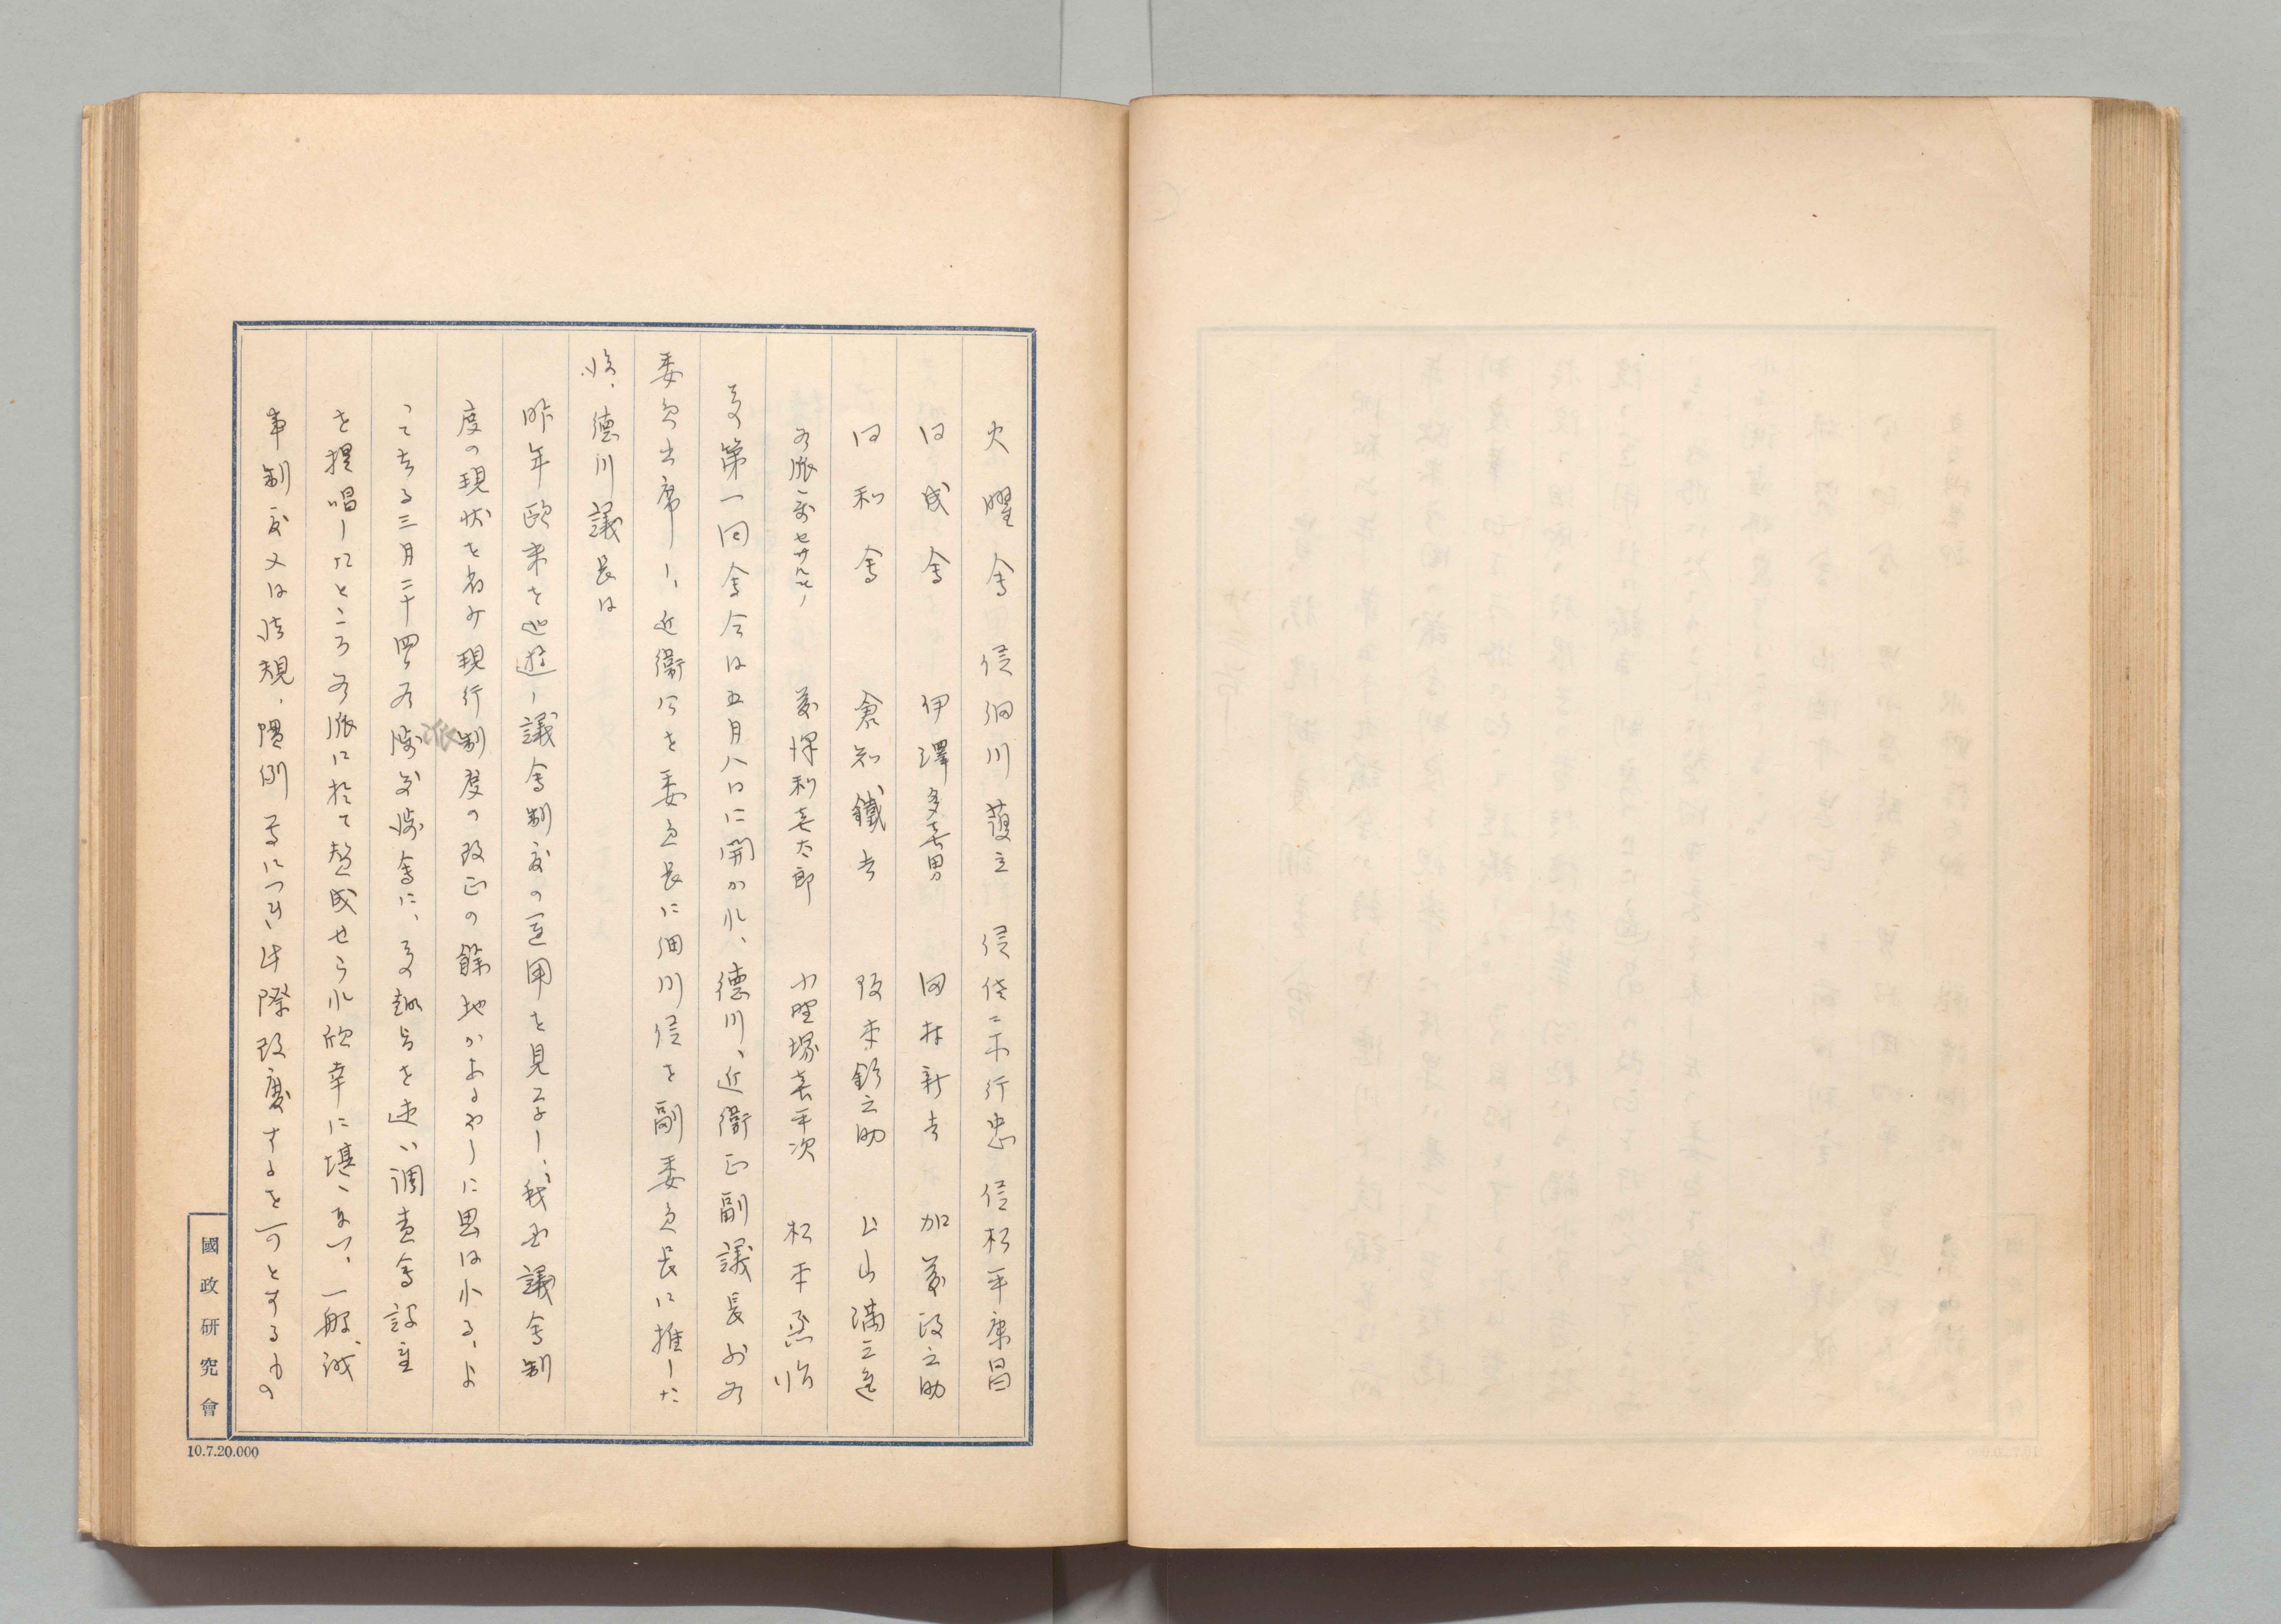 火曜會 侯細川護立 侯佐々木行忠 侯松平康昌
同成會 伊澤多喜男 田村新吉 加藤政之助
同和會 倉知鐵吉 阪本釤之助 上山満之進
各派ニ属セサルモノ 美濃部 小野塚喜平次 松本烝治
その第一回會合は五月八日に開かれ、德川、近衞正副議長お各
委員出席し、近衞公を委員長に細川侯を副委員長に推した
後、德川議長は
昨年歐米を巡遊し議會制度の運用を見學し、我國議會制
度の現状を省み現行制度の改正の餘地があるやうに思はれる、よ
つて去る三月二十四日各派交渉會に、その趣旨を述べ調査會設置
を提唱したところ各派に於て賛成せられ欣幸に堪へない、一般議
事制度又は法規、慣例等につき此際改廢するを可とするもの
國政研究會
10.7.20.000